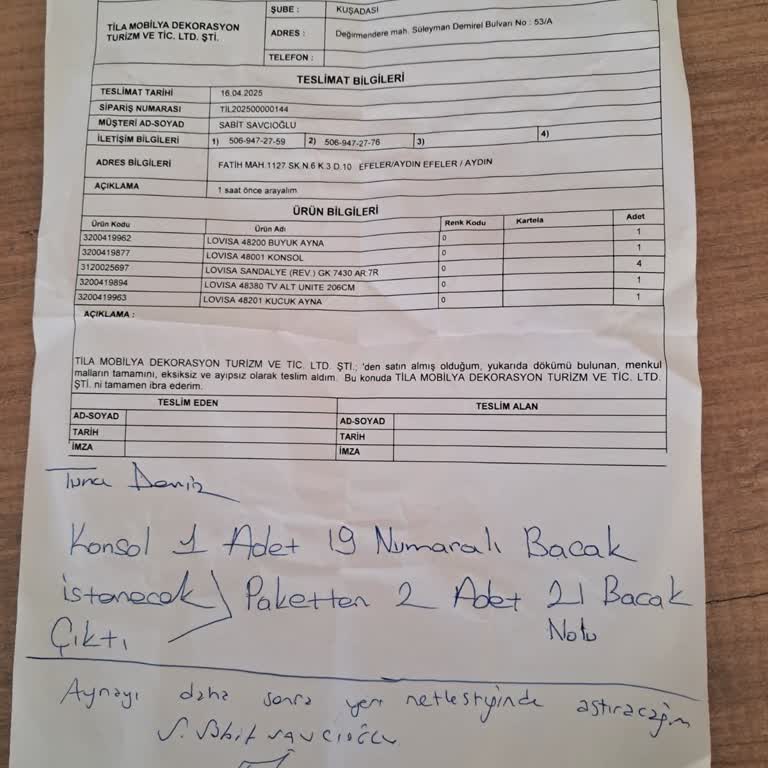 ŞUBE : KUŞADASI
TİLA MOBİLYA DEKORASYON
TURİZM VE TİC. LTD. ŞTİ.
ADRES : Değirmendere mah. Süleyman Demirel Bulvarı No : 53/A
TELEFON :
TESLİMAT BİLGİLERİ
TESLİMAT TARİHİ 16.04.2025
SİPARİŞ NUMARASI TİL202500000144
MÜŞTERİ AD-SOYAD SABİT SAVCIOĞLU
İLETİŞİM BİLGİLERİ 1) 506-947-27-59 2) 506-947-27-76 3) 4)
ADRES BİLGİLERİ FATİH MAH.1127 SK.N.6 K.3 D.10 EFELER/AYDIN EFELER / AYDIN
AÇIKLAMA 1 saat önce arayalım
ÜRÜN BİLGİLERİ
Ürün Kodu Ürün Adı Renk Kodu Kartela Adet
3200419962 LOVISA 48200 BUYUK AYNA 0 1
3200419877 LOVISA 48001 KONSOL 0 1
3120025697 LOVISA SANDALYE (REV.) GK 7430 AR 7R 0 4
3200419894 LOVISA 48380 TV ALT UNITE 206CM 0 1
3200419963 LOVISA 48201 KUCUK AYNA 0 1
AÇIKLAMA :
TİLA MOBİLYA DEKORASYON TURİZM VE TİC. LTD. ŞTİ.; 'den satın almış olduğum, yukarıda dökümü bulunan, menkul
malların tamamını, eksiksiz ve ayıpsız olarak teslim aldım. Bu konuda TİLA MOBİLYA DEKORASYON TURİZM VE TİC. LTD.
ŞTİ. ni tamamen ibra ederim.
TESLİM EDEN TESLİM ALAN
AD-SOYAD AD-SOYAD
TARİH TARİH
İMZA İMZA
Tuna Deniz
Konsol 1 Adet 19 Numaralı Bacak
istenecek Paketten 2 Adet 21 Bacak
Çıktı Nolu
Aynayı daha sonra yeri netleştiğinde astıracağım
S. Sabit SAVCIOĞLU